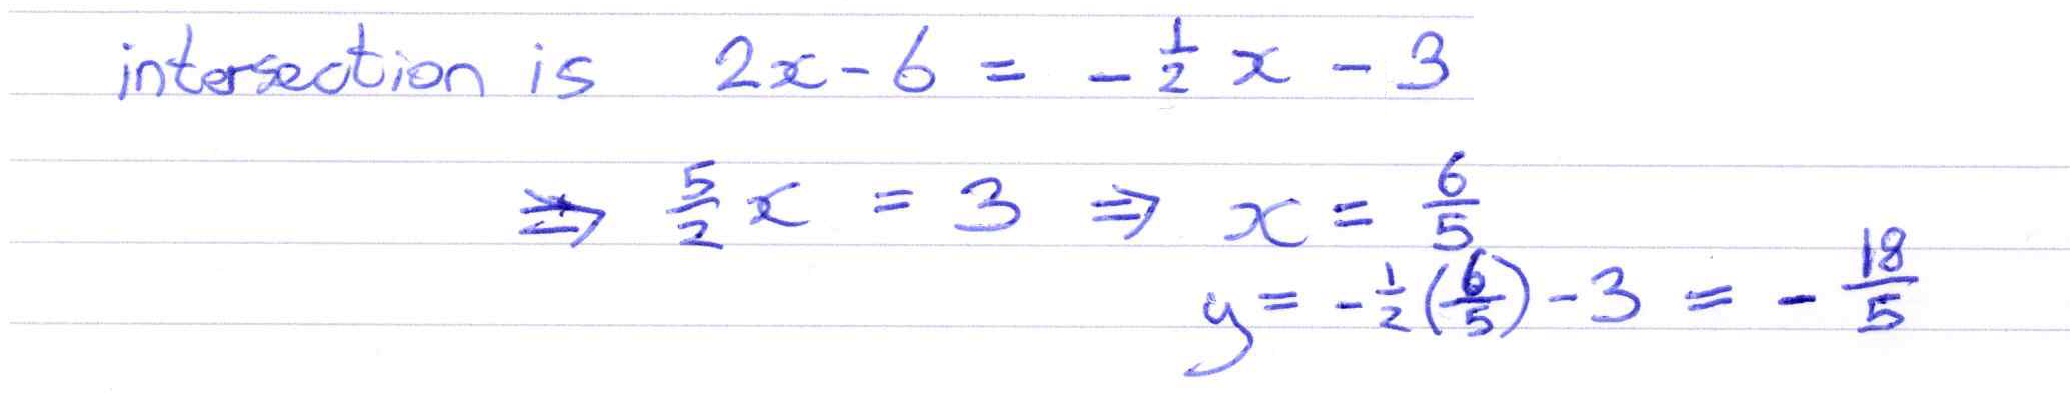 intersection is 2x - 6 = -½x - 3
⇒ 5/2 x = 3 ⇒ x = 6/5
y = -½(6/5) - 3 = -18/5